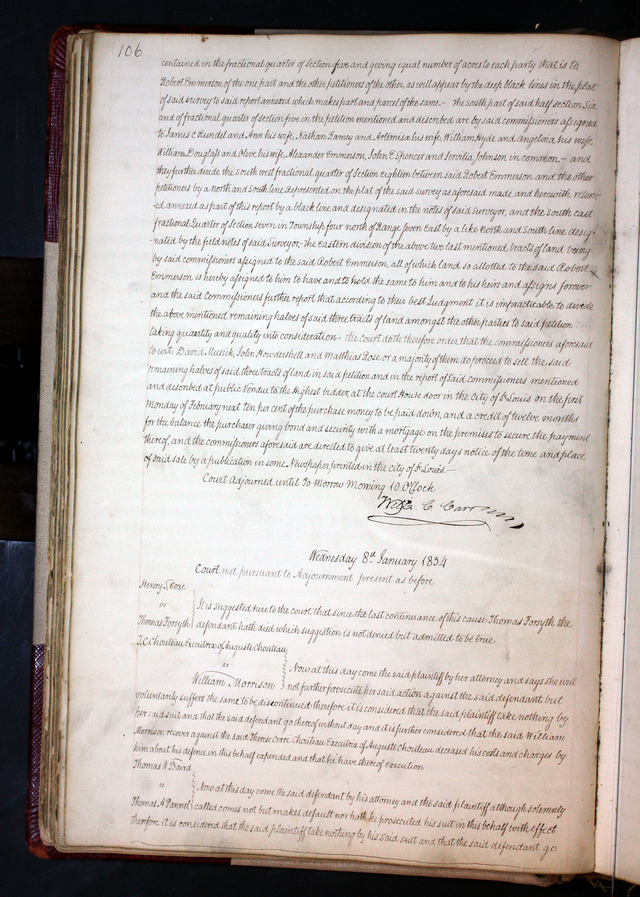 106
contained in the fractional quarter of section five and giving equal number of acres to each party that is to
Robert Emmerson of the one part and the other petitioners of the other, as will appear by the deep black lines in the plat
of said survey to said report annexed which makes part and parcel of the same - the south part of said half section Six
and of fractional quarter of section five in the petition mentioned and described are by said commissioners assigned
to James C Rundel and Ann his wife, Nathan Ramey and Artemisa his wife, William Hyde and Angelina his wife
William Douglass and Olive his wife, Alexander Emmerson, John E Spences and Servilia Johnson in common, - and
they further divide the south west fractional quarter of Section eighteen between said Robert Emmerson and the other
petitioners by a north and south line Represented on the plat of the said survey as aforesaid made, and herewith return
ed annexed as part of this report by a black line and designated in the notes of said Surveyor, and the south east
fractional Quarter of Section seven in Township four north of Range seven East by a like North and South line desig-
nated by the field notes of said Surveyor, the Eastern division of the above two last mentioned tracts of land being
by said commissioners assigned to the said Robert Emmerson, all of which land so allotted to the said Robert
Emmerson is hereby assigned to him to have and to hold the same to him and to his heirs and assigns forever
and the said Commissioners further report that according to their best Judgment it is impracticable to divide
the above mentioned remaining halves of said three tracts of land amongst the other parties to said petition
taking quantity and quality into consideration - the court doth therefore order that the commissioners aforesaid
to wit, David Musick, John Howdershell and Matthias Rose or a majority of them do proceed to sell the said
remaining halves of said three tracts of land in said petition and in the report of Said commissioners mentioned
and described at public Vendue to the Highest bidder, at the court House door in the city of St Louis on the first
Monday of February next ten per cent of the purchase money to be paid down, and a credit of twelve months
for the balance the purchaser giving bond and security with a mortgage on the premises to secure the payment
thereof, and the commissioners aforesaid are directed to give at least twenty days notice of the time and place
of said sale by a publication in some Newspaper printed in the city of St Louis. -
Court Adjourned until To Morrow Morning 10 O'Clock
C. Carr
Wednesday 8th January 1834
Court met pursuant to Adjournment present as before
Henry
vs
Thomas Forsyth
It is suggested here to the court that since the last continuance of this cause Thomas Forsyth the
defendant hath died which suggestion is not denied but admitted to be true
T. C Chouteau Executrix of Auguste Chouteau
vs
William Morrison
Now at this day come the said plaintiff by her attorney and says she will
not further prosecute her said action against the said defendant but
voluntarily suffers the same to be discontinued therefore it is considered that the said plaintiff take nothing by
her said suit and that the said defendant go thereof without day and it is further considered that the said William
Morrison recover against the said Therese Cerre Chouteau Executrix of Auguste Chouteau deceased his costs and charges by
him about his defence in this behalf expended and that he have thereof execution
Thomas W Baird
vs
Thomas A Pannel
Now at this day come the said defendant by his attorney and the said plaintiff although solemnly
called comes not but makes default nor hath he prosecuted his suit in this behalf with effect
therefore it is considered that the said plaintiff take nothing by his said suit and that the said defendant go